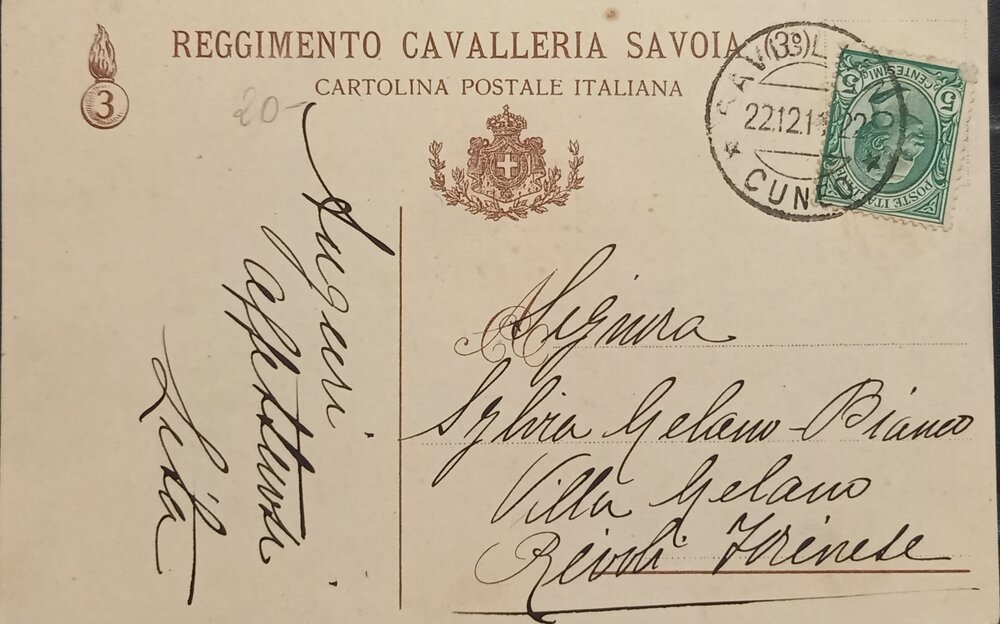 REGGIMENTO CAVALLERIA SAVOIA (3º)
CARTOLINA POSTALE ITALIANA
3
20-
22.12.1
CUNEO
5 CENTESIMI 5
POSTE ITAL
Auguri
affettuosi
Signora
Sylvia Gelano-Bianco
Villa Gelano
Rivoli Torinese